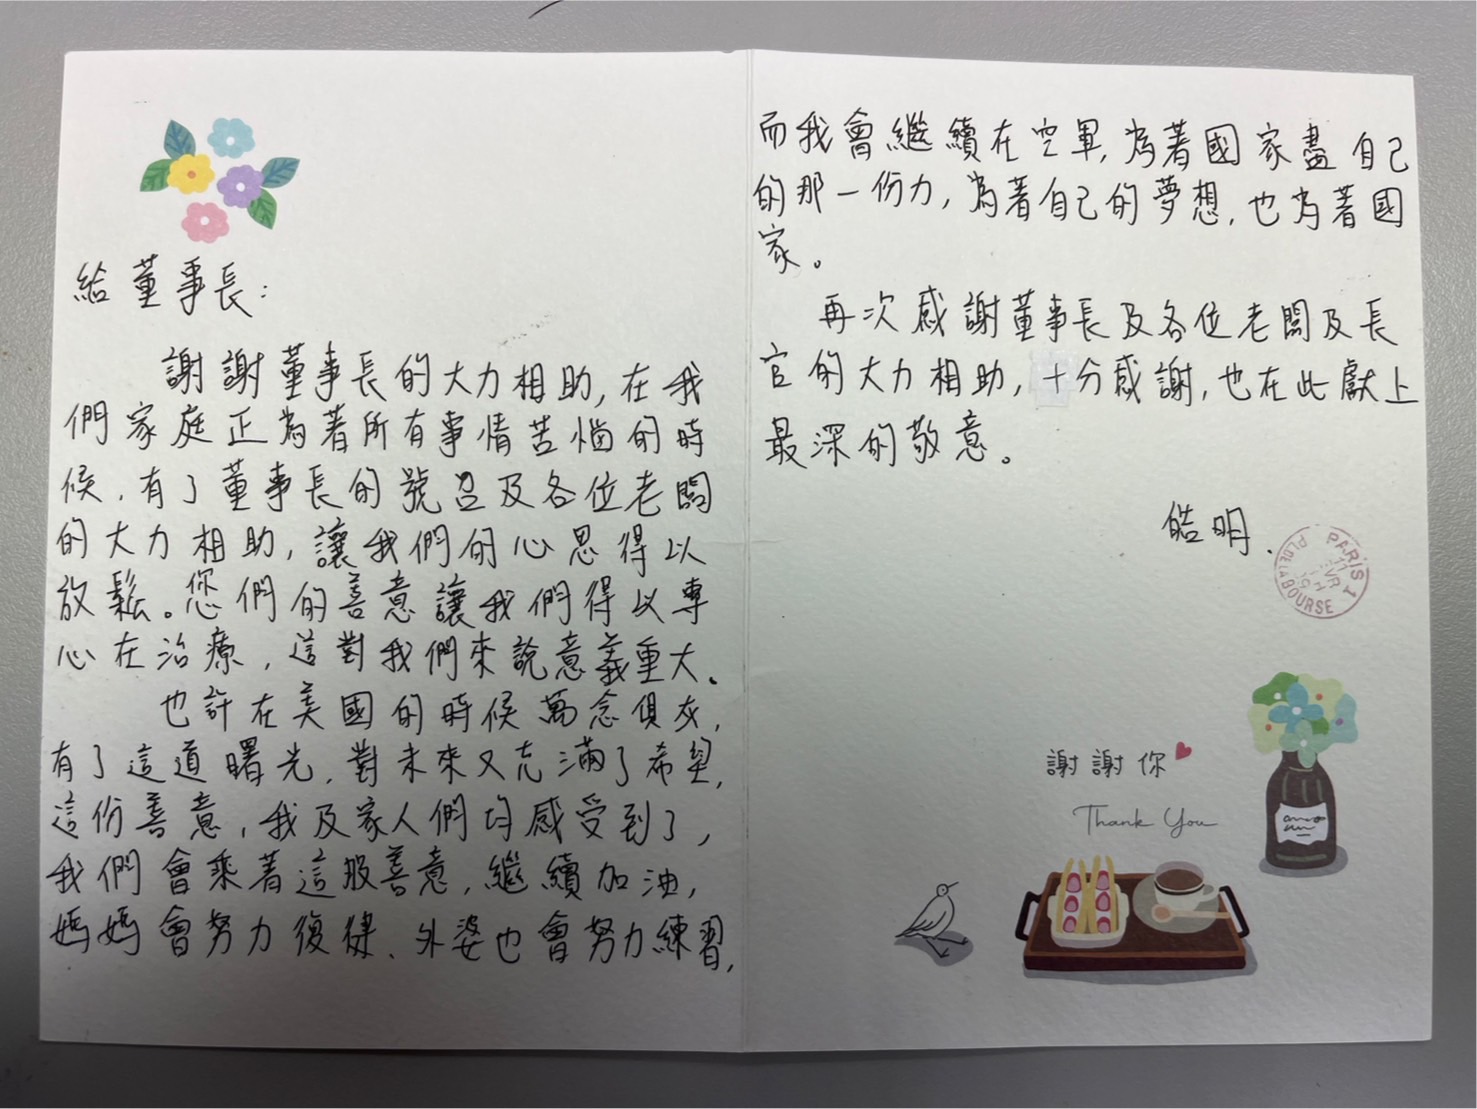 給董事長：
謝謝董事長的大力相助，在我
們家庭正為著所有事情苦惱的時
候，有了董事長的號召及各位老闆
的大力相助，讓我們的心思得以
放鬆。您們的善意讓我們得以專
心在治療，這對我們來說意義重大。
也許在美國的時候萬念俱灰，
有了這道曙光，對未來又充滿了希望，
這份善意，我及家人們均感受到了，
我們會乘著這股善意，繼續加油，
媽媽會努力復健、外婆也會努力練習，
而我會繼續在空軍，為著國家盡自己
的那一份力，為著自己的夢想，也為著國
家。
再次感謝董事長及各位老闆及長
官的大力相助，十分感謝，也在此獻上
最深的敬意。
皓明.
PARIS 1
BOURSE
謝謝你
Thank You